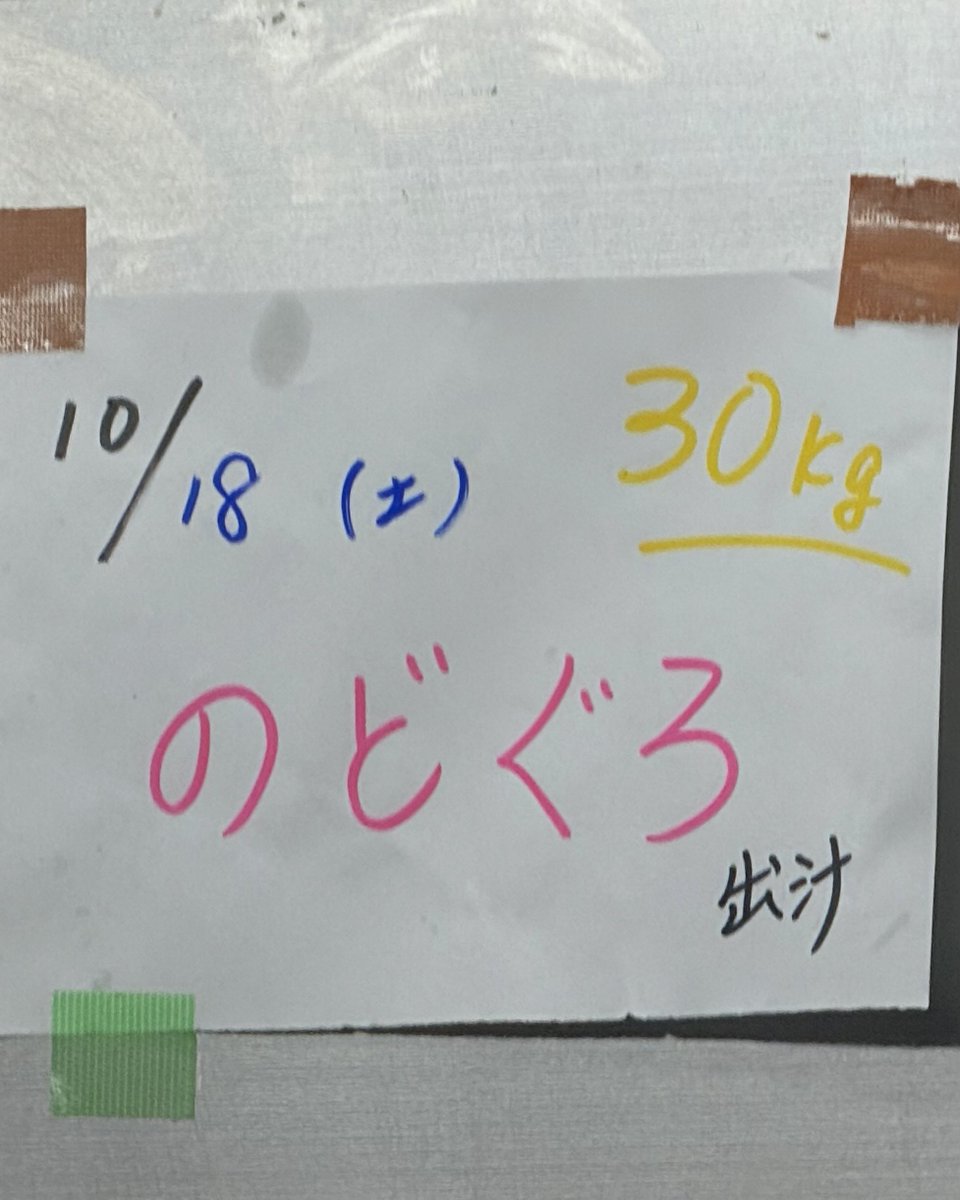 10/18 (土) 30kg
のどぐろ
出汁